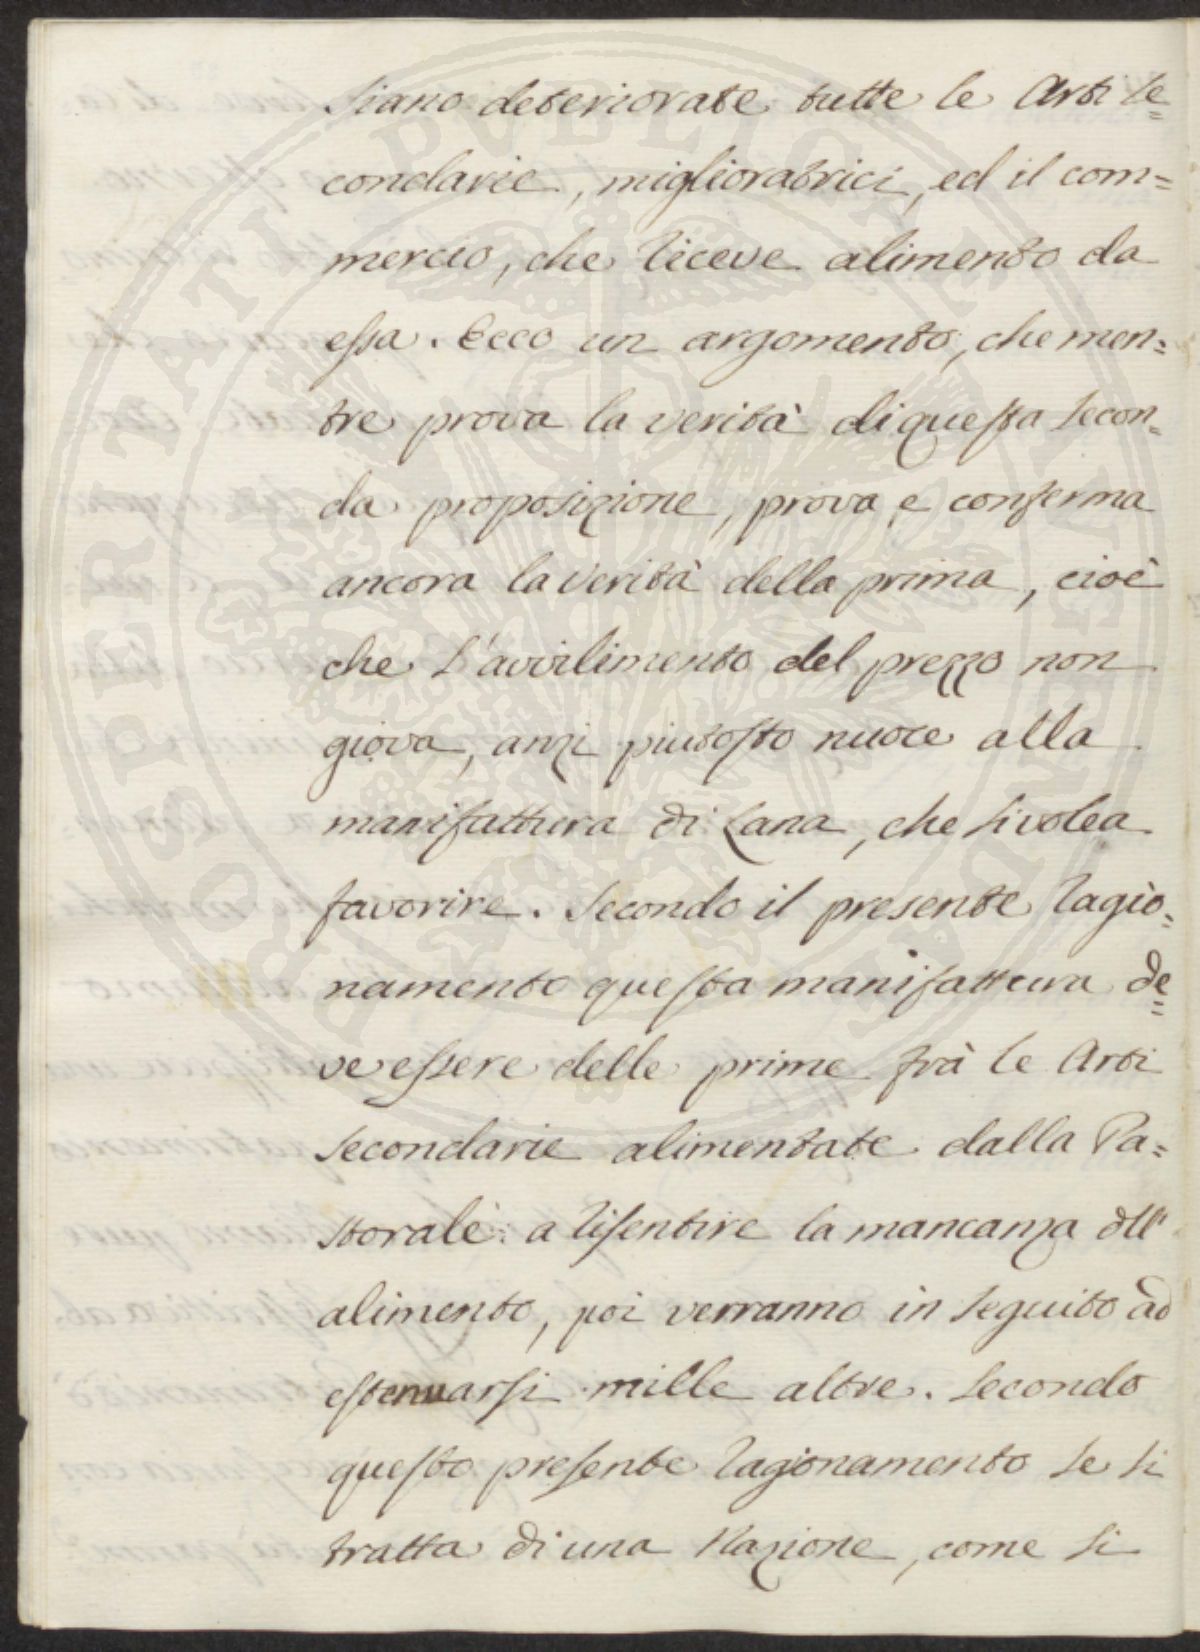 siano deteriorate tutte le Arti se=
condarie, miglioratrici, ed il com=
mercio, che riceve alimento da
essa. Ecco un argomento, che men=
tre prova la verità di questa secon=
da proposizione, prova, e conferma
ancora la verità della prima, cioè
che l'avvilimento del prezzo non
giova, anzi piutosto nuoce alla
manifattura di Lana, che si volea
favorire. Secondo il presente ragio=
namento questa manifattura de=
ve essere delle prime frà le Arti
secondarie alimentate dalla Pa=
storale: a risentire la mancanza dll'
alimento, poi verranno in seguito ad
estenuarsi mille altre. Secondo
questo presente ragionamento se si
tratta di una Nazione, come si
PROSPERITATI PUBLICAE AUGENDAE